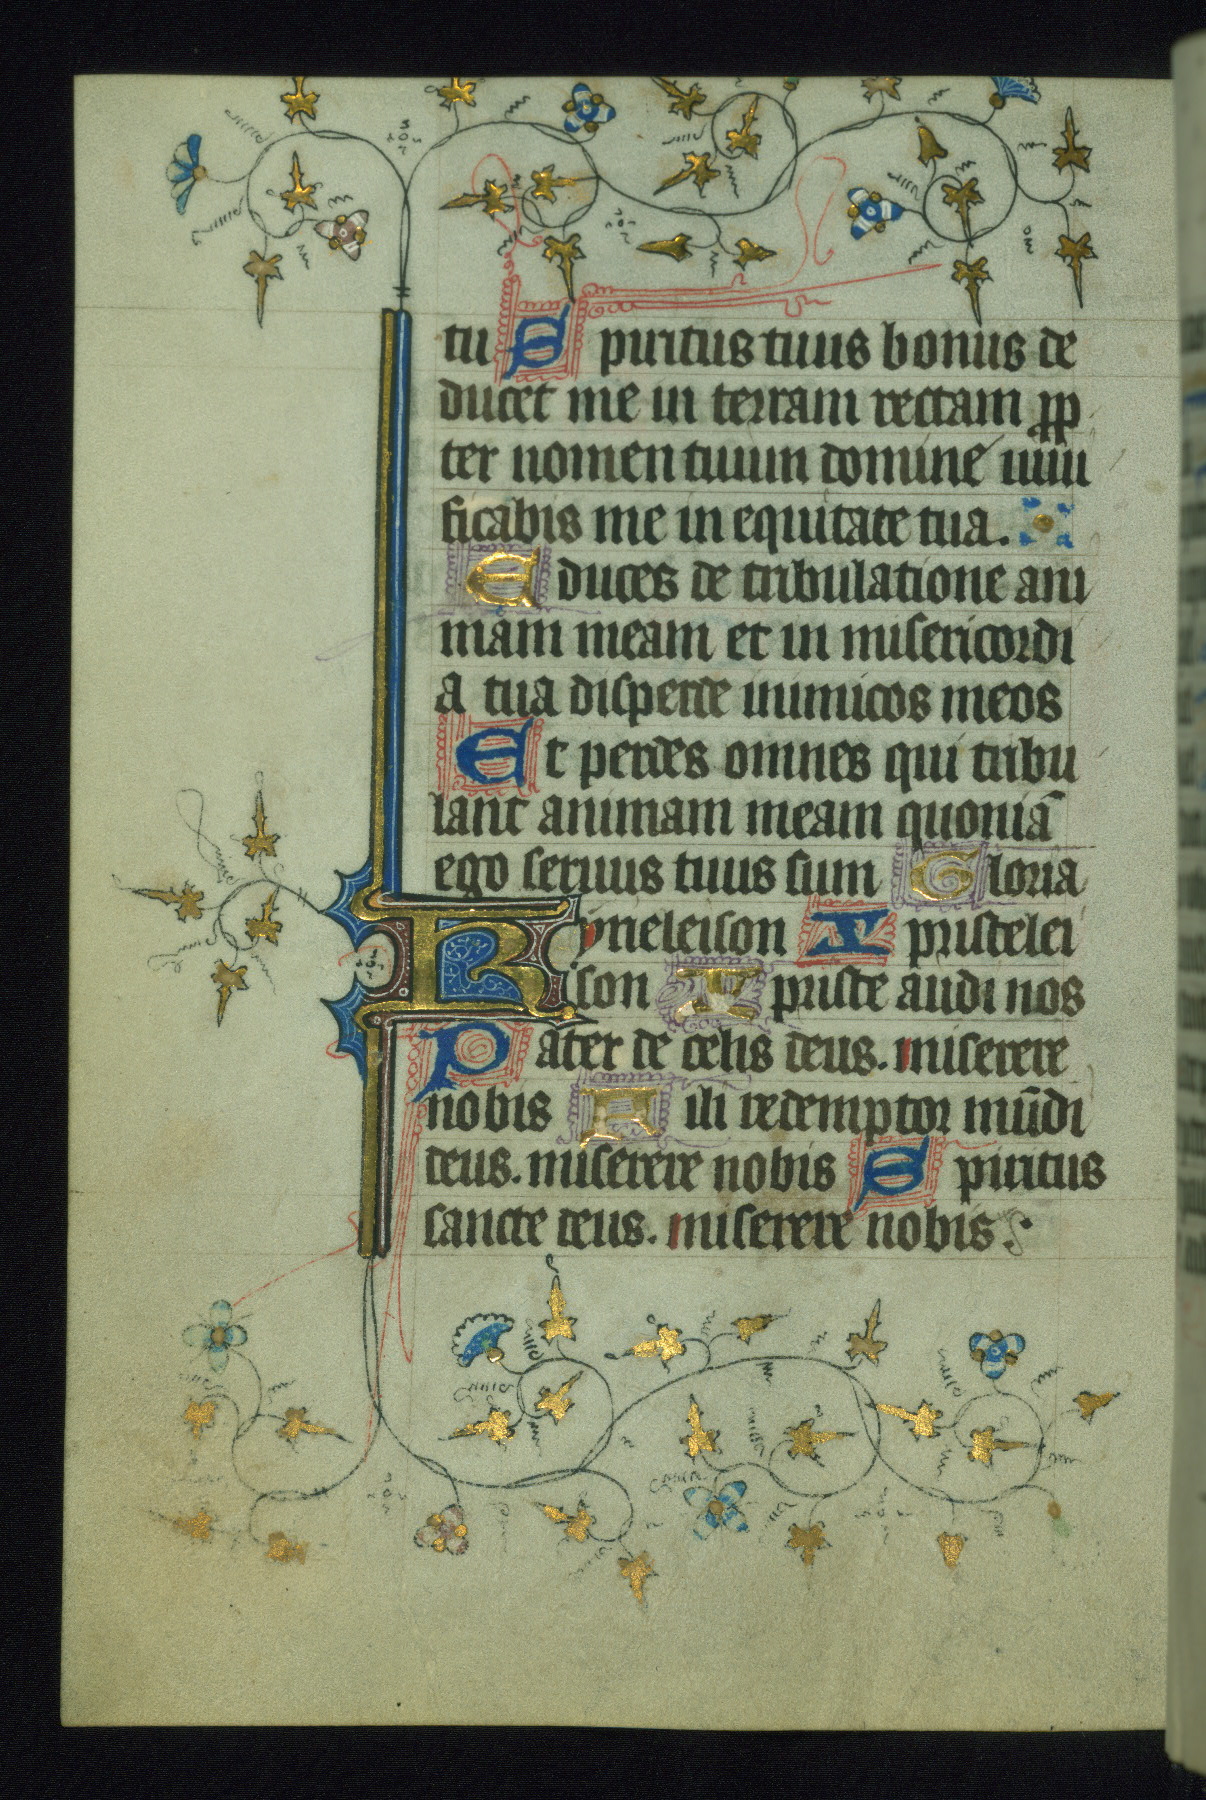 tu Spiritus tuus bonus de
ducet me in terram rectam ꝓp
ter nomen tuum domine uiui
ficabis me in equitate tua.
Educes de tribulatione ani
mam meam et in misericordi
a tua disperde inimicos meos
Et perdes omnes qui tribu
lant animam meam quoniā
ego seruus tuus sum Gloria
Kyneleison Xpristelei
ison Xpriste audi nos
Pater de celis deus. miserere
nobis Fili redemptor mūdi
deus. miserere nobis Spiritus
sancte deus. miserere nobis.